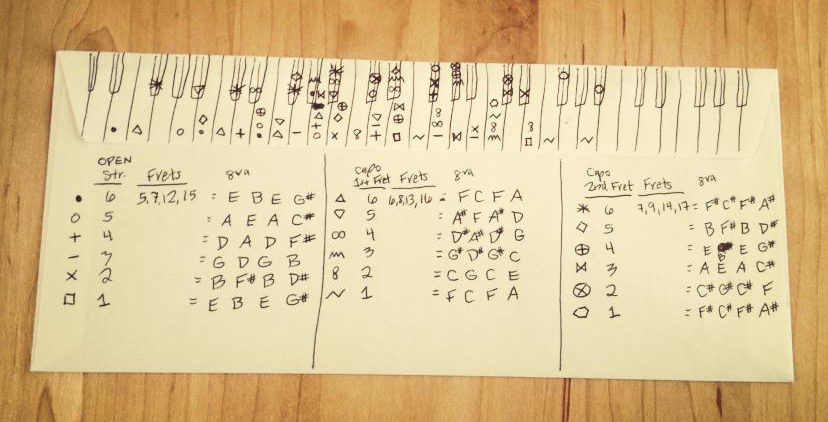 OPEN
Str. Frets 8va
• 6 5,7,12,15 = E B E G#
○ 5 = A E A C#
+ 4 = D A D F#
− 3 = G D G B
× 2 = B F# B D#
□ 1 = E B E G#
Capo
1st Fret Frets 8va
△ 6 6,8,13,16 = F C F A
▽ 5 = A# F A# D
∞ 4 = D# A# D# G
m 3 = G# D# G# C
8 2 = C G C E
~ 1 = F C F A
Capo
2nd Fret Frets 8va
✳ 6 7,9,14,17 = F# C# F# A#
◇ 5 = B F# B D#
⊕ 4 = E B E G#
⋈ 3 = A E A C#
⊗ 2 = C# G# C# F
⬠ 1 = F# C# F# A#